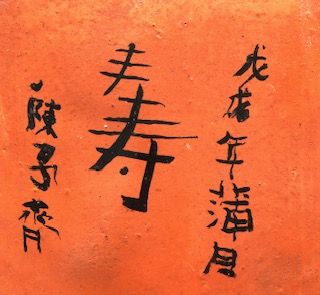 戊戌年蒲月
寿
陳子